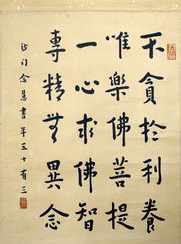 不貪於利養
唯樂佛菩提
一心求佛智
專精無異念
沙門念慧書年五十有三